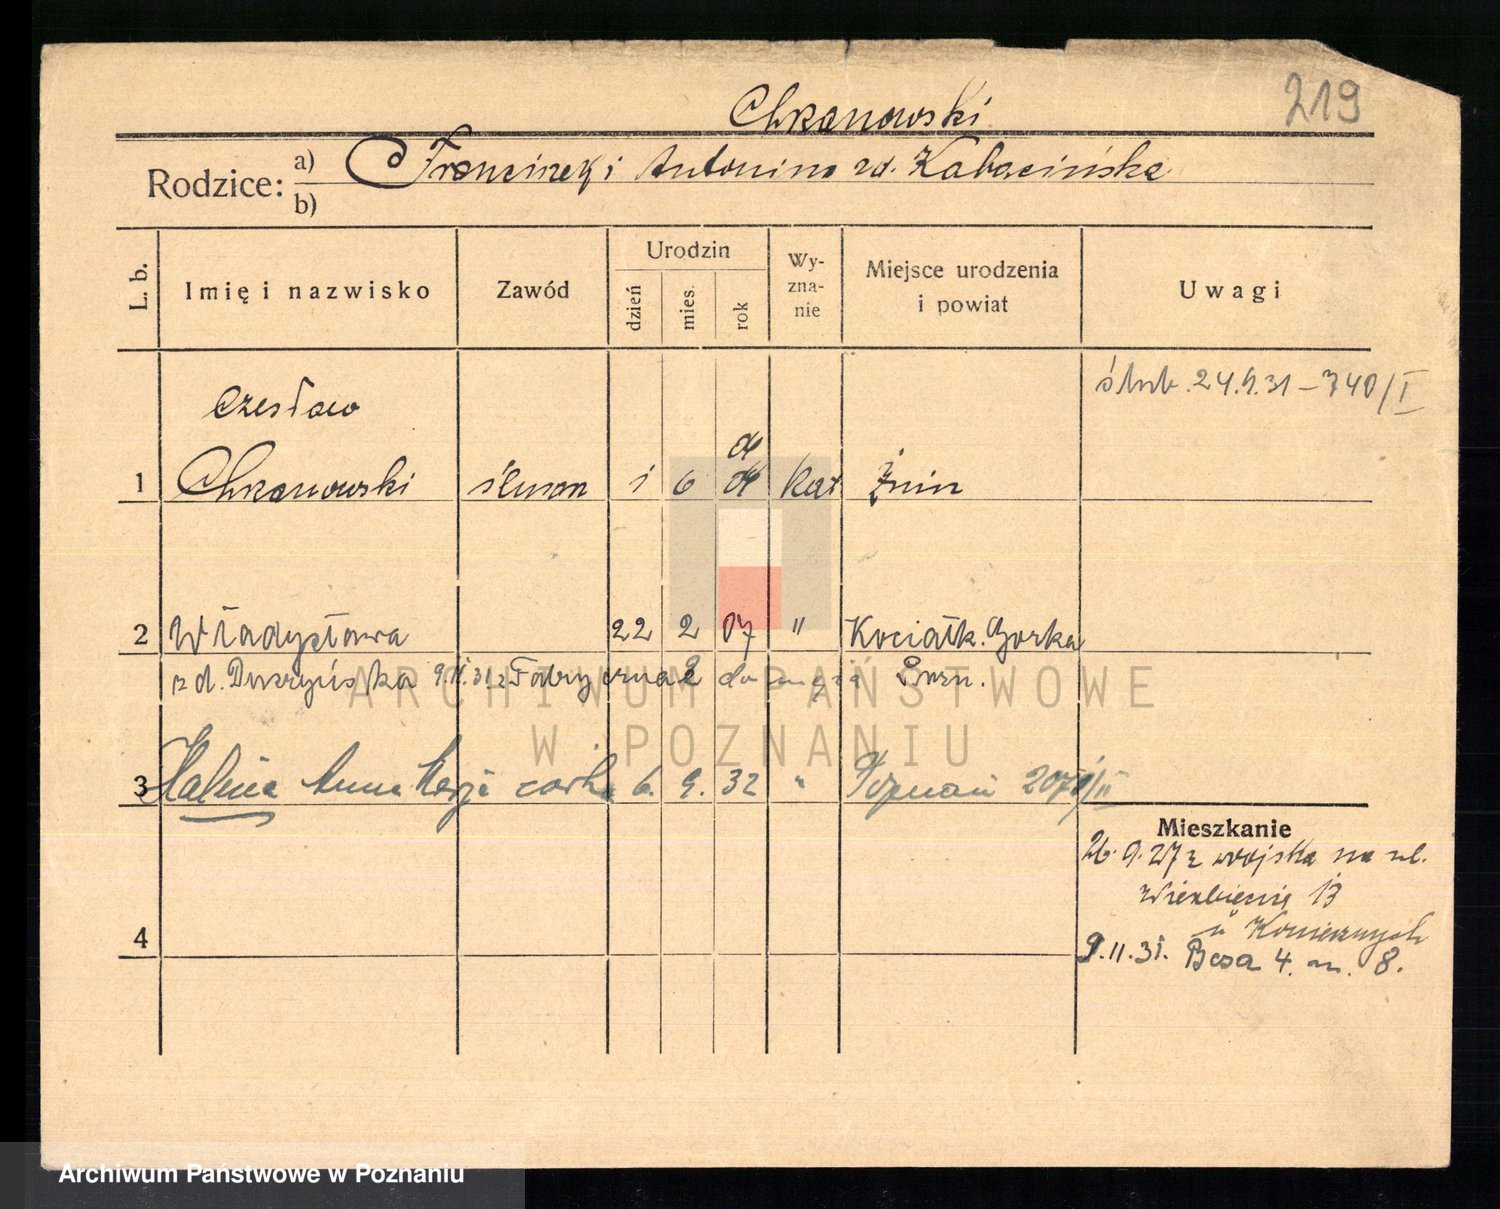 219
Chrzanowski
Rodzice: a) Franciszek i Antonina zd. Kabacińska
b)
L. b. Imię i nazwisko Zawód Urodzin dzień mies. rok Wy-zna-nie Miejsce urodzenia i powiat Uwagi
ślub. 24.9.31 – 740/I
Czesław
04
1 Chrzanowski ślusarz 1 6 04 Kat Żnin
2 Władysława 22 2 07 " Kociałk. Gorka
zd. 9.11.31 z Fabryczna 2 do męża Śrem.
3 Halina Anna Marja córka 6. 9. 32 " Poznań /II
Mieszkanie
26.9.27 z wojska na ul.
Wierzbięcic 13
u Koniecznych
4
9.11.31. Bosa 4. m. 8.
ARCHIWUM PAŃSTWOWE
W POZNANIU
Archiwum Państwowe w Poznaniu